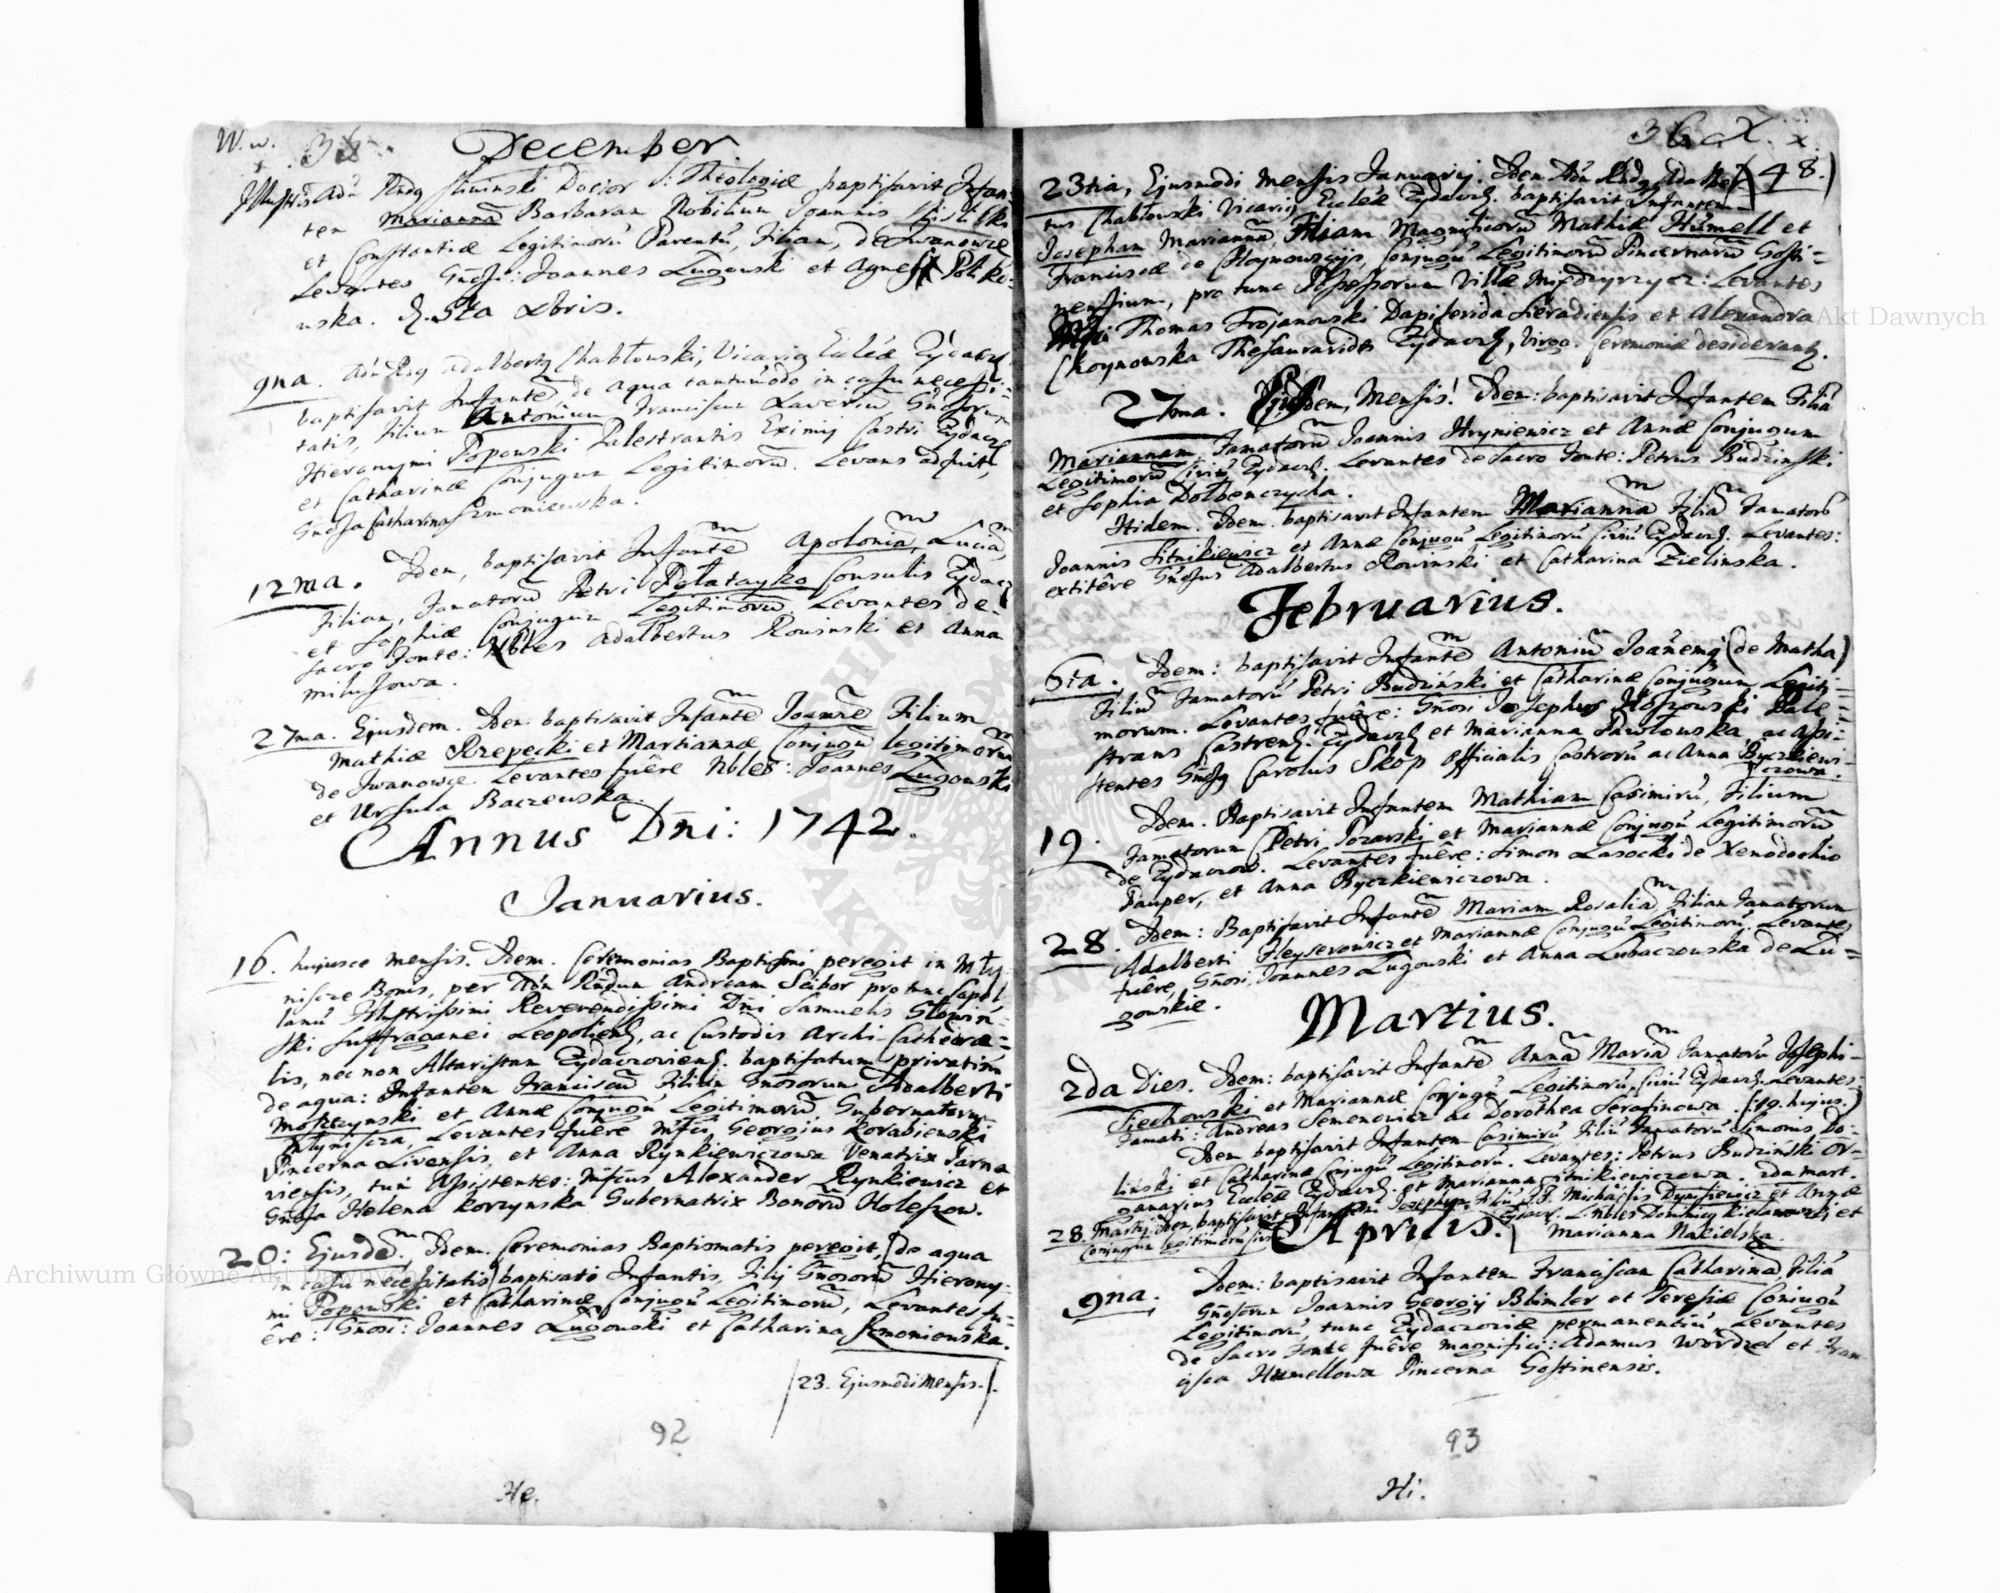 W. w.
December
Illustris Adm Rndg Sliwinski Doctor S. Theologiæ baptisavit Infan-
tem Mariannam Barbaram Nobilium Joannis
et Constantiæ Legitimorũ Parentũ, Filiam, de Jwanowce
Levantes Gnosi: Joannes Lugowski et Agnes Potko-
wska. D. 5ta Xbris.
9na. Adm Rdg Adalbertg Chabłowski, Vicarig Eccleæ Zydacz.
baptisavit Infantẽ de aqua tantumodo in casu necessi-
tatis, Filium Antonium Franciscum Xaveriũ Gnosorum
Hieronymi Popowski Palestrantis Eximij Castri Zydacz.
et Catharinæ Conjugum Legitimorũ. Levans adfuit,
Gnosa Catharina Szmoniewska.
12ma. Idem, baptisavit Infantẽ Apoloniã, Luciã
Filiam, Famatorũ Petri Pełatayko Consulis Zydacz
et Sophiæ Conjugum Legitimorũ. Levantes de
Sacro Fonte: Nbles Adalbertus Rowinski et Anna
Milussowa.
27ma. Ejusdem. Idem baptisavit Infantẽ Joannẽ Filium
Mathiæ Rzepecki et Mariannæ Conjugũ legitimorũ
de Jwanowce. Levantes fuêre Nbles: Joannes Lugowski
et Ursula Baczewska.
Annus Dñi: 1742.
Januarius.
16. hujusce mensis. Idem. Ceremonias Baptismi peregit in Mły-
niszcze Bonis, per Adm Rndum Andream Scibor pro tunc Capel-
lanũ Illustrissimi Reverendissimi Dñi Samuelis Głowin-
ski Suffraganei Leopoliens, ac Custodis Archi-Cathedra-
lis, nec non Altaristam Zydaczoviens. baptisatum privatim
de aqua: Infantem Franciscũ Filium Gnosorum Adalberti
Moszczynski et Annæ Conjugũ Legitimorũ. Gubernatorum
Młyniszcza, Levantes fuêre Mfcus Georgius Korabiewski
Pincerna Livensis, et Anna Rynkiewiczowa Venatrix Parna
viensis, tum Assistentes: Mfcus Alexander Rynkiewicz et
Gnosa Helena Korzynska Gubernatrix Bonorũ Holeszow.
20: Ejusdẽ, Idem. Ceremonias Baptismatis peregit, de aqua
in casu necessitatis baptisato Infantis, Filij Gnosorũ Hierony-
mi Popowski et Catharinæ Conjugũ Legitimorũ, Levantes fu-
êre: Gnosi: Joannes Lugowski et Catharina Szmoniewska.
(23. Ejusmodi Mensis.)
92
He.
36 X. x.
23tia, Ejusmodi Mensis Januarij. Idem Adm Rndg Adalber- (48.)
tus Chabłowski Vicarig Eccleæ Zydacz. baptisavit Infantem
Josepham Mariannã Filiam Magnificorũ Mathiæ Humell et
Franciscæ de Choynowscijs, Conjugũ Legitimorũ Pincernarũ Gosti-
nensium, pro tunc Possessorum Villæ Międzyrzycz: Levantes
Mgci Thomas Trojanowski Dapiferida Sieradiensis et Alexandra
Choynowska Thesaurarides Zydacz, Virgo. Ceremoniæ desiderant.
27ma. Ejusdem, Mensis! Idem: baptisavit Infantem Filiã
Mariannam, Famatorũ Joannis Hryniewicz et Annæ Conjugum
Legitimorũ Civiũ Zydacz. Levantes de Sacro Fonte: Petrus Budzinski
et Sophia Dołbenczycha.
Itidem. Idem. baptisavit Infantem Mariannã Filiã Famatorũ
Joannis Sitnikiewicz et Annæ Conjugũ Legitimorũ Civiũ Zydacz. Levantes:
extitêre Gnosus Adalbertus Rowinski et Catharina Zielinska.
Februarius.
6ta. Idem: baptisavit Infantẽ Antoniũ Joañemq (de Matha)
Filiũ Famatorũ Petri Budzinski et Catharinæ Conjugum Legiti-
morum. Levantes fuêre: Gnosi Josephus Hoszowski Pale-
strans Castrens. Zydacz et Marianna Pawłowska ac Assi-
stentes Gnosg Carolus Skop Officialis Castrorũ ac Anna Byczkiewi-
czowa.
19. Idem. Baptisavit Infantem Mathiam Casimirũ, Filium
Famatorum Petri Pozarski et Mariannæ Conjugũ Legitimorũ
de Zydaczow. Levantes fuêre: Simon Lasocki de Xenodochio
Pauper, et Anna Byczkiewiczowa.
28. Idem: Baptisavit Infantẽ Mariam Rosaliã, Filiam Famatorum
Adalberti Heyserowicz et Mariannæ Conjugũ Legitimorũ. Levantes
fuêre, Gnosi Joannes Lugowski et Anna Lubaczewska de Lu-
gowskie.
Martius.
2da Dies. Idem: baptisavit Infantẽ Annã Mariã Famatorũ Josephi
Siechowski et Mariannæ Conjugũ Legitimorũ, Civiũ Zydacz. Levantes:
Famati: Andreas Semenowicz ac Dorothea Serafinowa. (19. hujus.)
Idem baptisavit Infantem Casimirũ Filiũ Famatorũ Simonis Do-
linski et Catharinæ Conjugũ Legitimorũ. Levantes: Petrus Budzinski Or-
ganarius Eccleæ Zydacz. et Marianna Sitnikiewiczowa. 2da mart.
28. Martij Idem, baptisavit Infantem Josephum Filiũ FF. Michaëlis Dynisiewicz et Annæ
Conjugum legitimorũ Civiũ Zydacz. L. Nbles Dominicg Kielanowski et
Marianna Nakielska.
Aprilis.
9na. Idem: baptisavit Infantem Franciscam Catharinã Filiã
Gnosorum Joannis Georgij Blimler et Teresiæ Conjugũ
Legitimorũ, tunc Zydaczoviæ permanentiũ, Levantes
de Sacro Fonte fuêre Magnifici: Adamus Wordzel et Fran-
cisca Humellowa Pincerna Gostinensis.
93
Hi.
Archiwum Główne Akt Dawnych
Akt Dawnych